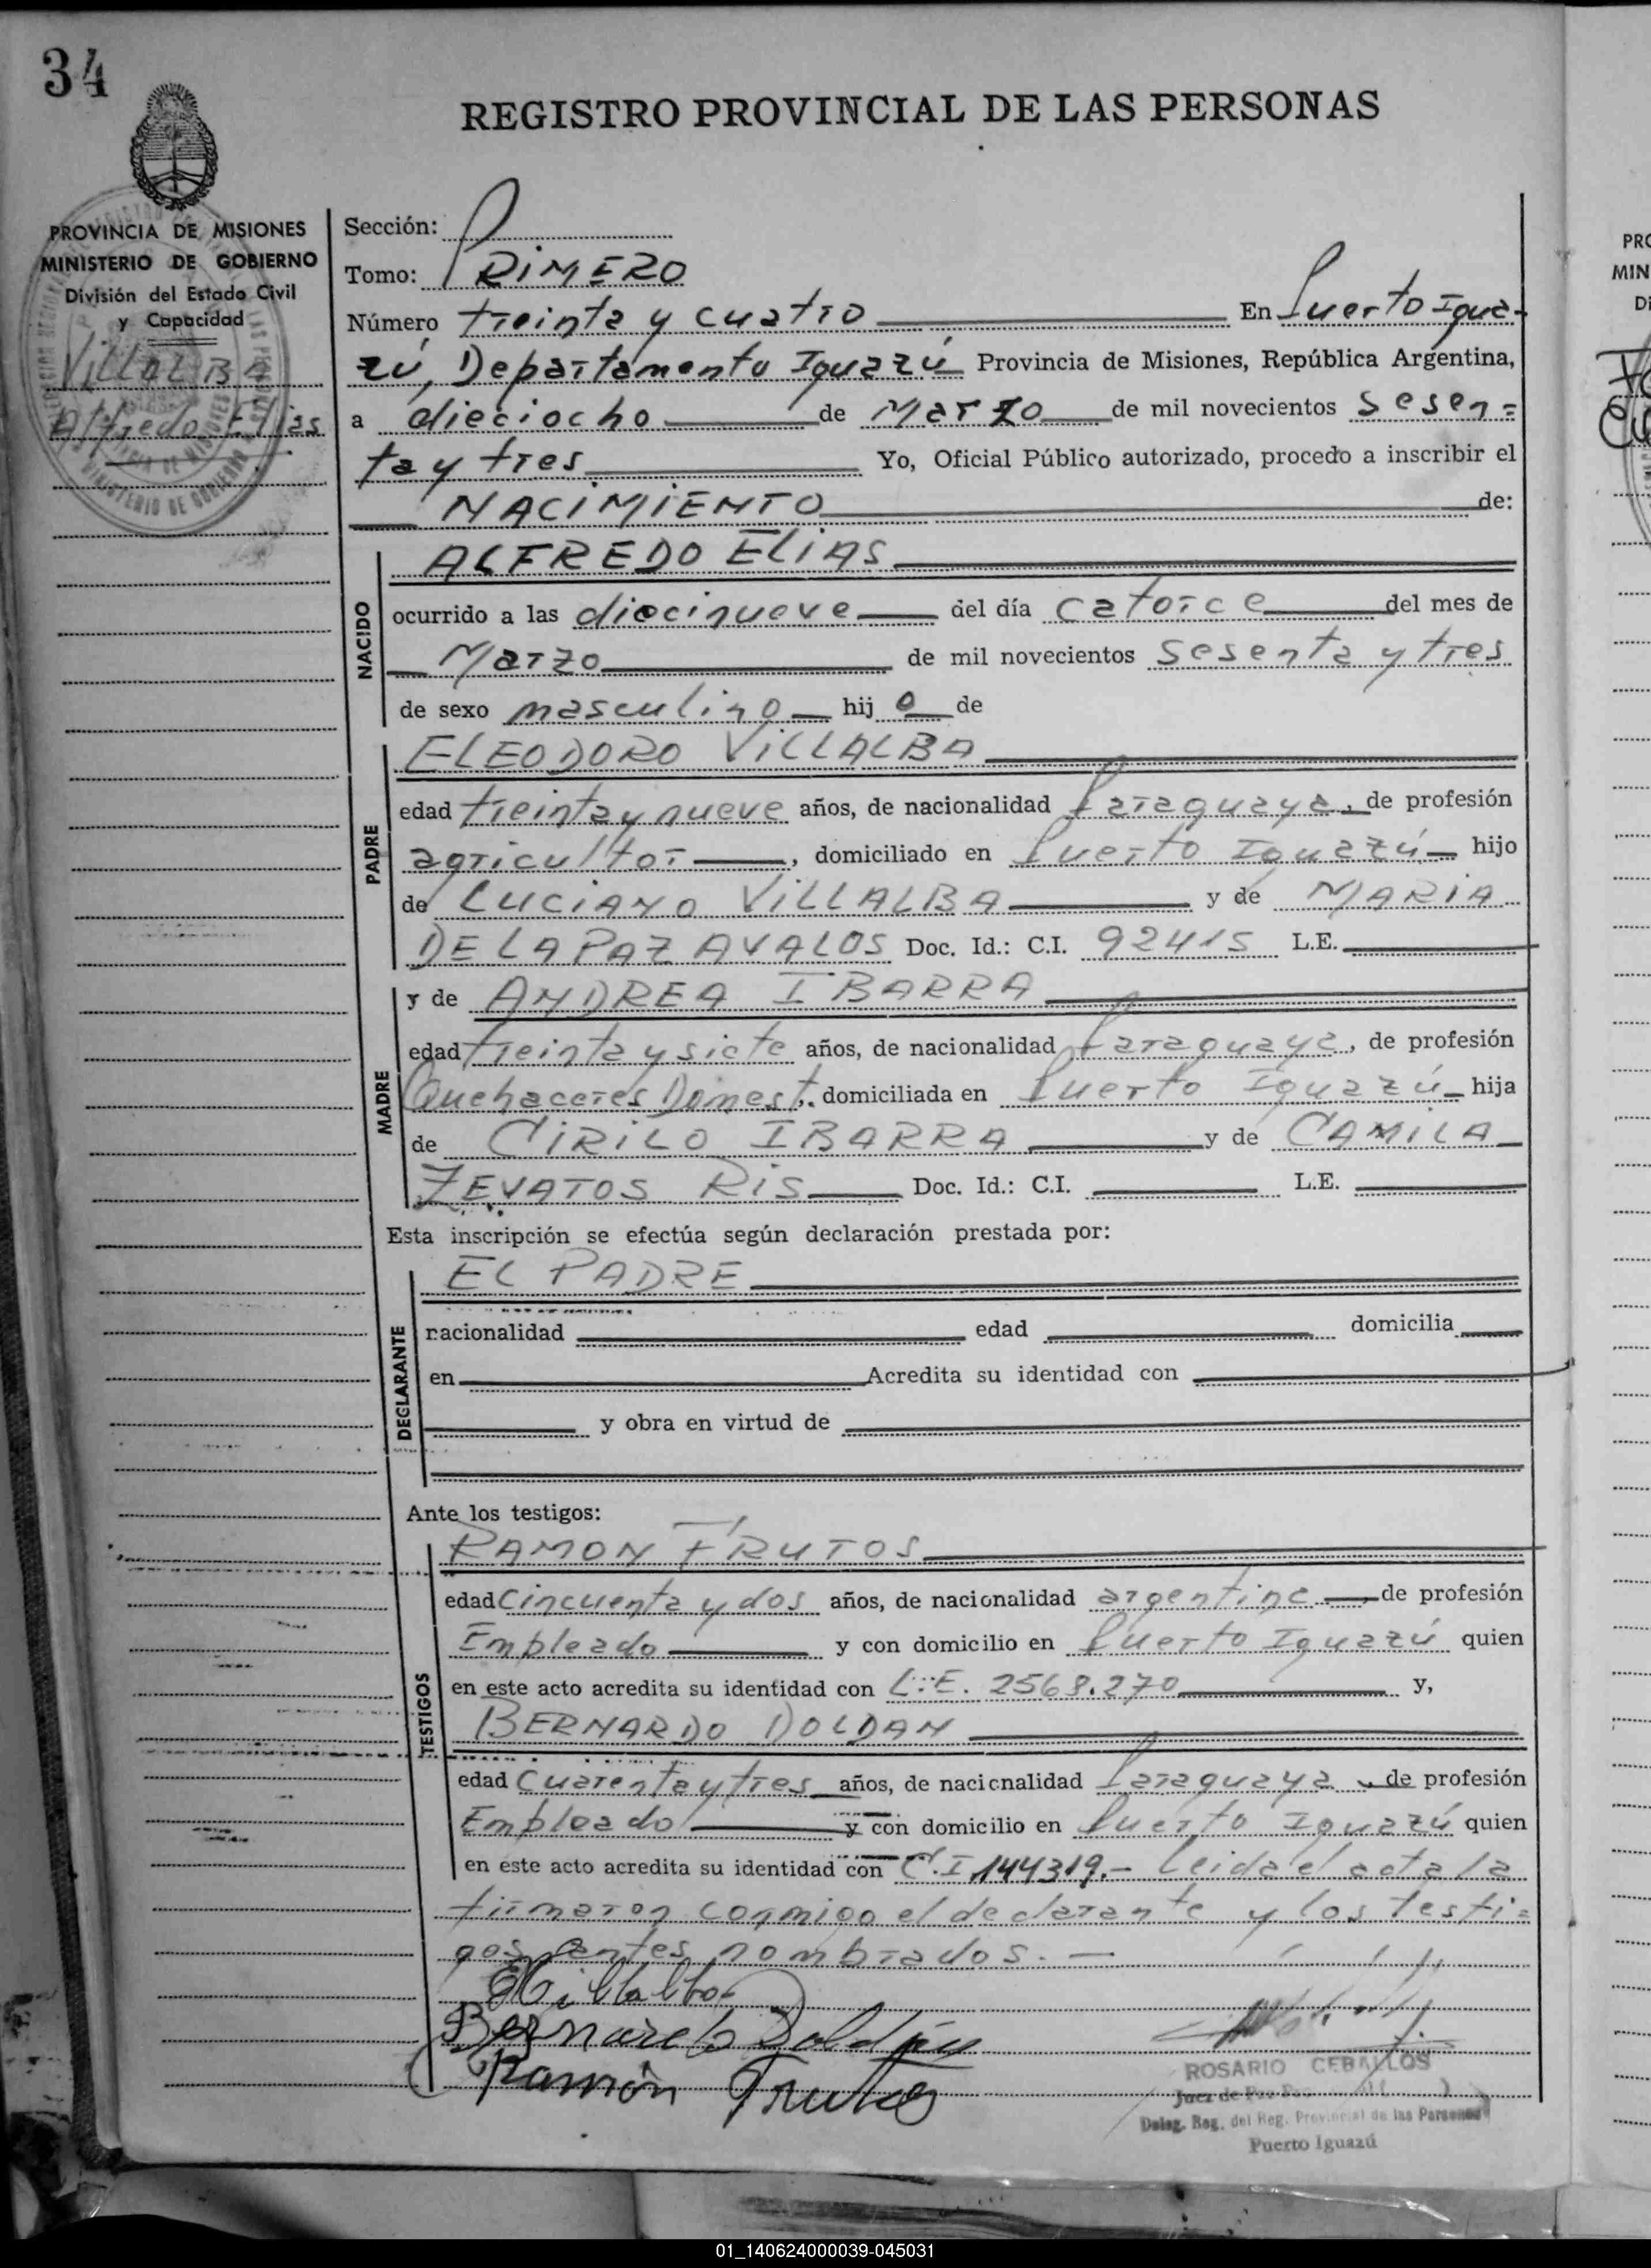 34
REGISTRO PROVINCIAL DE LAS PERSONAS
PROVINCIA DE MISIONES
MINISTERIO DE GOBIERNO
División del Estado Civil
y Capacidad
VillALBA
Alfredo Elias
Sección:
Tomo: PRIMERO
Número treinta y cuatro En Puerto Igua-
zú, Departamento Iguazú Provincia de Misiones, República Argentina,
a dieciocho de Marzo de mil novecientos Sesen=
ta y tres Yo, Oficial Público autorizado, procedo a inscribir el
NACIMIENTO de:
NACIDO
ALFREDO ELIAS
ocurrido a las diecinueve del día catorce del mes de
Marzo de mil novecientos sesenta y tres
de sexo masculino hij o de
PADRE
ELEODORO VILLALBA
edad treinta y nueve años, de nacionalidad Paraguaya, de profesión
agricultor, domiciliado en Puerto Iguazú hijo
de LUCIANO VILLALBA y de MARIA
DE LA PAZ AVALOS Doc. Id.: C.I. 92415 L.E.
MADRE
y de ANDREA IBARRA
edad treinta y siete años, de nacionalidad Paraguaya, de profesión
Quehaceres Domest. domiciliada en Puerto Iguazú hija
de CIRILO IBARRA y de CAMILA
ZEVATOS RIS Doc. Id.: C.I. L.E.
Esta inscripción se efectúa según declaración prestada por:
DECLARANTE
EL PADRE
nacionalidad edad domicilia
en Acredita su identidad con
y obra en virtud de
Ante los testigos:
TESTIGOS
RAMON FRUTOS
edad Cincuenta y dos años, de nacionalidad argentina, de profesión
Empleado y con domicilio en Puerto Iguazú quien
en este acto acredita su identidad con L.E. 2568.270 y,
BERNARDO DOLDAN
edad Cuarenta y tres años, de nacionalidad Paraguaya, de profesión
Empleado y con domicilio en Puerto Iguazú quien
en este acto acredita su identidad con C.I 144319.- Leida el acta la
firmaron conmigo el declarante y los testi=
gos antes nombrados.-
EVillalba
Bernardo Doldán
Ramón Frutos
ROSARIO CEBALLOS
Juez de Paz
Deleg. Reg. del Reg. Provincial de las Personas
Puerto Iguazú
01_140624000039-045031